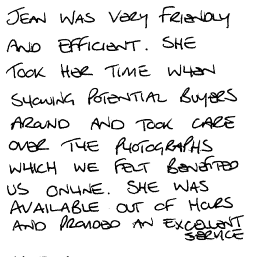 JEAN WAS VERY FRIENDLY
AND EFFICIENT. SHE
TOOK HER TIME WHEN
SHOWING POTENTIAL BUYERS
AROUND AND TOOK CARE
OVER THE PHOTOGRAPHS
WHICH WE FELT BENEFITED
US ONLINE. SHE WAS
AVAILABLE OUT OF HOURS
AND PROVIDED AN EXCELLENT
SERVICE